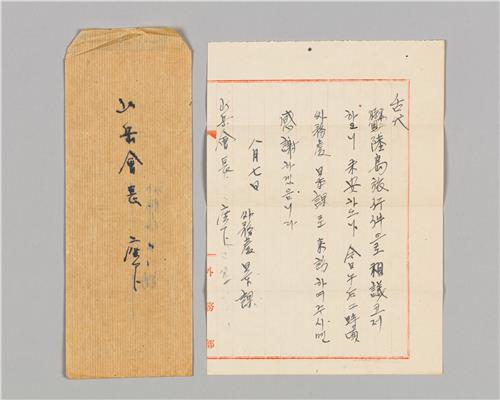 舌代
欝陵島旅行件으로 相議코저
하오니 未安하오나 今日午后二時頃
外務處 日本課로 來訪하여주시면
感謝하겠읍니다
八月七日
外務處 日本課
山岳會長 座下
外務部
山岳會長 座下